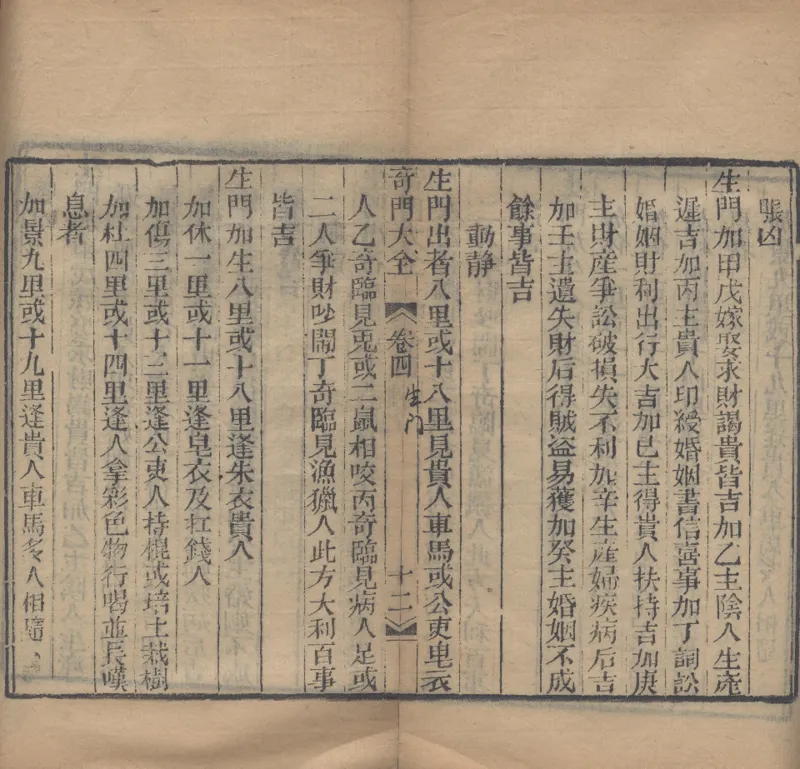 張凶
生門加甲戊嫁娶求財謁貴皆吉加乙主陰人生產
遲吉加丙主貴人印綬婚姻書信喜事加丁詞訟
婚姻財利出行大吉加己主得貴人扶持吉加庚
主財産爭訟破損失不利加辛生産婦疾病后吉
加壬主遺失財后得賊盜易獲加癸主婚姻不成
餘事皆吉
動靜
生門出者八里或十八里見貴人車馬或公吏皂衣
奇門大全 卷四 生门 十二
人乙奇臨見兎或二鼠相咬丙奇臨見病人足或
二人爭財吵鬧丁奇臨見漁獵人此方大利百事
皆吉
生門加生八里或十八里逢朱衣貴人
加休一里或十一里逢皂衣及扛錢人
加傷三里或十三里逢公吏人持棍或培土栽樹
加杜四里或十四里逢人拿彩色物行喝並長嘆
息者
加景九里或十九里逢貴人車馬多人相隨